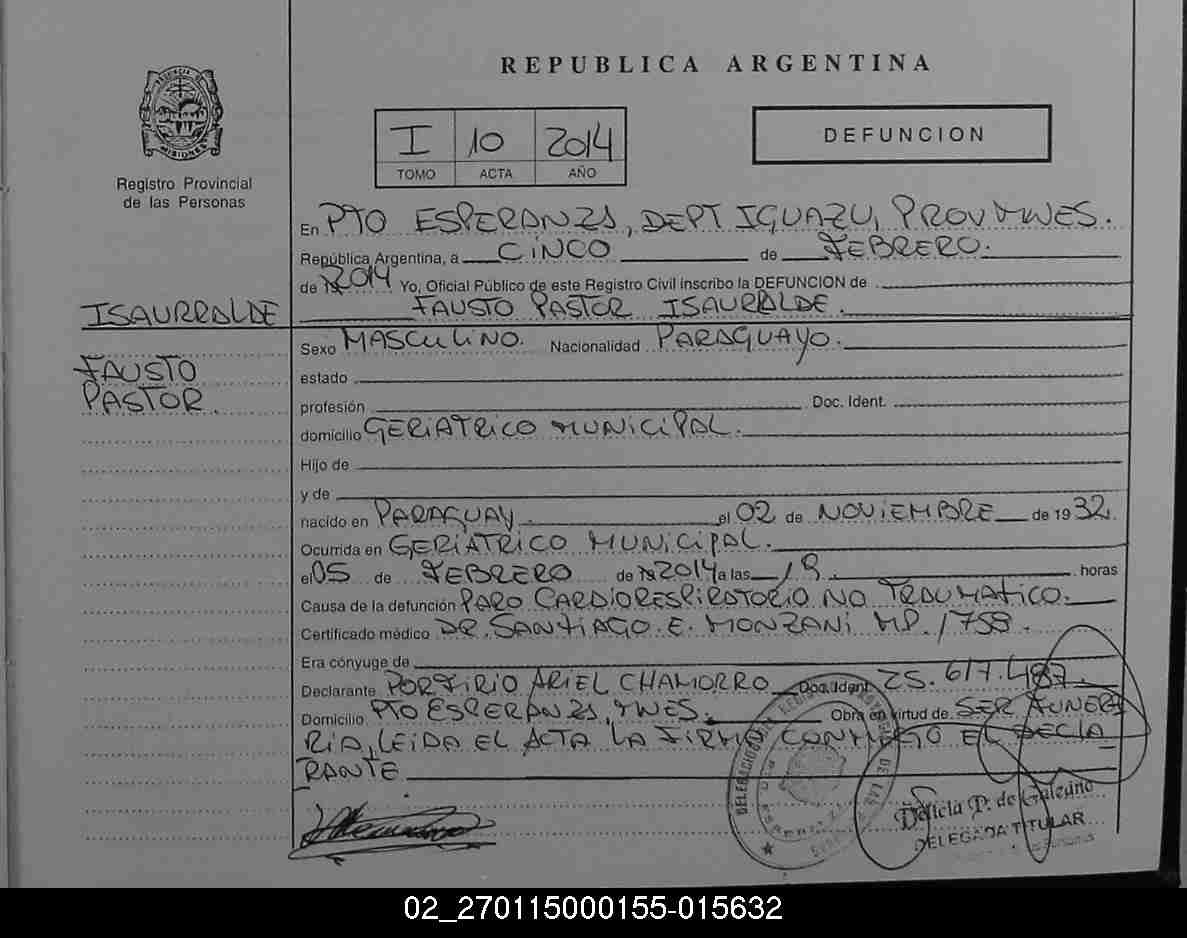 REPUBLICA ARGENTINA
PROVINCIA DE
MISIONES
Registro Provincial
de las Personas
I 10 2014
TOMO ACTA AÑO
DEFUNCION
En PTO ESPERANZA, DEPT IGUAZU, PROV MNES.
República Argentina, a CINCO de FEBRERO.
de 2014 Yo, Oficial Público de este Registro Civil inscribo la DEFUNCION de
ISAURRALDE
FAUSTO PASTOR ISAURALDE.
Sexo MASCULINO. Nacionalidad PARAGUAYO.
FAUSTO
estado
PASTOR.
profesión Doc. Ident.
domicilio GERIATRICO MUNICIPAL.
Hijo de
y de
nacido en PARAGUAY el 02 de NOVIEMBRE de 1932.
Ocurrida en GERIATRICO MUNICIPAL.
el 05 de FEBRERO de 2014 a las 19 horas
Causa de la defunción PARO CARDIORESPIRATORIO NO TRAUMATICO.
Certificado médico DR. SANTIAGO E. MONZANI MP. 1758.
Era cónyuge de
Declarante PORFIRIO ARIEL CHAMORRO Doc. Ident. 25.617.487.
Domicilio PTO ESPERANZA, MNES. Obra en virtud de SER FUNERA
RIA, LEIDA EL ACTA LA FIRMA CONMIGO EL DECLA
RANTE
Delicia P. de Galeano
DELEGADA TITULAR
02_270115000155-015632